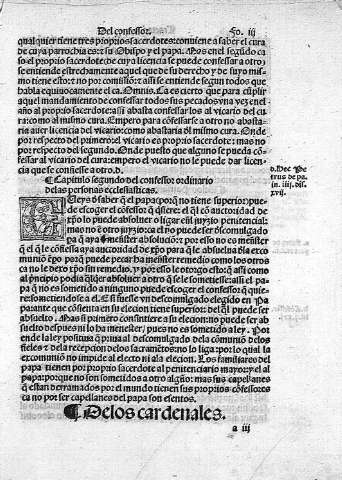 Del confessor. Fo. iij
qualquier tiene tres proprios sacerdotes: conuiene a saber el cura
de cuya parrochia es: y su Obispo y el papa. Mas en el segũdo ca
so el proprio sacerdote: de cuya licencia se puede confessar a otro:
se entiende estrechamente aquel que de su derecho y de suyo mis
mo tiene esto: y no por comission: y assi se entende segun todos que
habla equiuocamente el ca. Omnis. Ca es cierto que para cũplir
aquel mandamiento de confessar todos sus pecados vna vez en el
año al proprio sacerdote: assi abasta confessar los al vicario del cu
ra: como al mismo cura. Empero para cõfessar a otro no abasta-
ria auer licencia del vicario: como abastaria ðl mismo cura. Onde
por respecto del primero: el vicario es proprio sacerdote: mas no
por respecto del segundo. Onde puesto que alguno se pueda cõ
fessar al vicario del cura: empero el vicario no le puede dar licen
cia que se confiesse a otro. d.
d. Hec Pe
trus de pa.
in. iiij. dis.
xvij.
¶ Capitulo segundo del confessor ordinario
de las personas ecclesiasticas.
que el papa: porq̃ no tiene superior: pue-
de escoger el cõfessor q̃ q̃siere: el q̃l cõ auctoridad de
xp̃o lo puede absoluer o ligar enl juyzio penitencial:
mas no ẽ otro juyzio: ca el no puede ser descomulgado
pa q̃ aya menester absoluciõ: y por esso no es menester
q̃ el q̃ le cõfiessa aya auctoridad de xp̃o para que le absuelua ðla exco
muniõ: pero porq̃ puede pecar ha menester remedio como los otros
ca no le dexo xp̃o sin remedio, y por esso le otorgo esto: q̃ assi como
al prĩcipio podia q̃lq̃er absoluer a otro q̃ se le sometiesse: assi el pa-
pa q̃ no es sometido a ninguno puede escoger el confessor que quie-
re: sometiendose a el. E si fuesse vn descomulgado elegido en Pa
pa: ante que cõsienta en su eleccion tiene superior: del q̃l puede ser
absuelto. Mas si primero consintiere a su eleccion: no puede ser ab
suelto despues ni lo ha menester, pues no es sometido a ley. Por
ende la ley positiua q̃ priua al descomulgado dela cõmuniõ delos
fieles y dela recepcion delos sacramẽtos: no lo liga: por lo qual la
excomuniõ no impide al electo ni ala eleccion. Los familiares del
papa tienen por proprio sacerdote al penitenciario mayor: y el al
papa: porque no son sometidos a otro algũo: mas sus capellanes
que estan derramados por el mundo tienen sus proprios cõfessores
ca no por ser capellanes del papa son esentos.
¶ Delos cardenales.
a iij